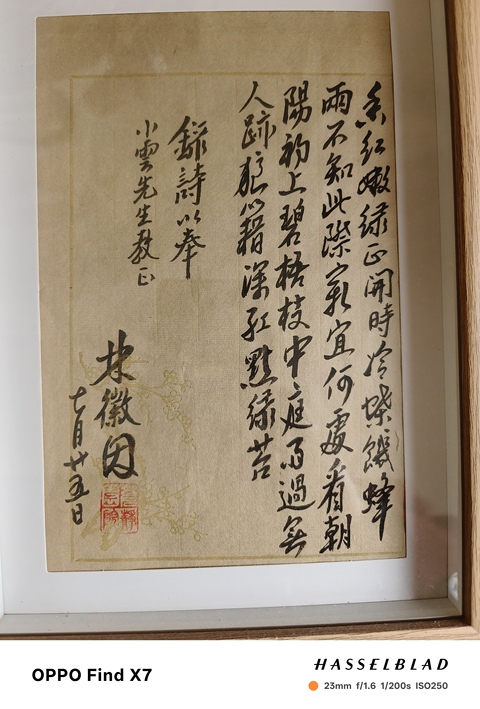 香紅嫩綠正開時冷蝶饑蜂
兩不知此際最宜何處看朝
陽初上碧梧枝中庭雨過無
人跡狼籍深紅點綠苔
錄詩以奉
小雲先生教正
林徽因
七月廿五日
OPPO Find X7
HASSELBLAD
23mm f/1.6 1/200s ISO250